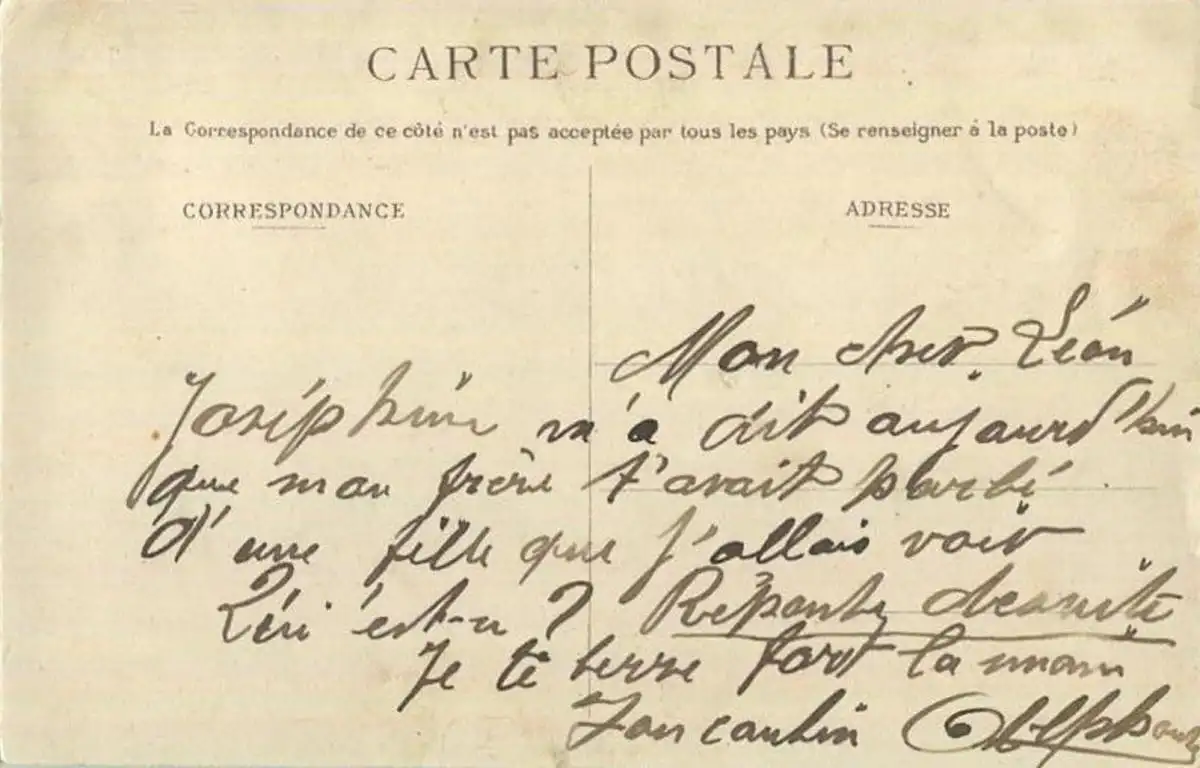 CARTE POSTALE
La Correspondance de ce côté n'est pas acceptée par tous les pays (Se renseigner à la poste)
CORRESPONDANCE
ADRESSE
Mon cher Léon
Joséphine m'a dit aujourd'hui
que mon frère t'avait parlé
d'une fille que j'allais voir
est-u ? Réponds
Je te serre fort la main
Ton Alphonse